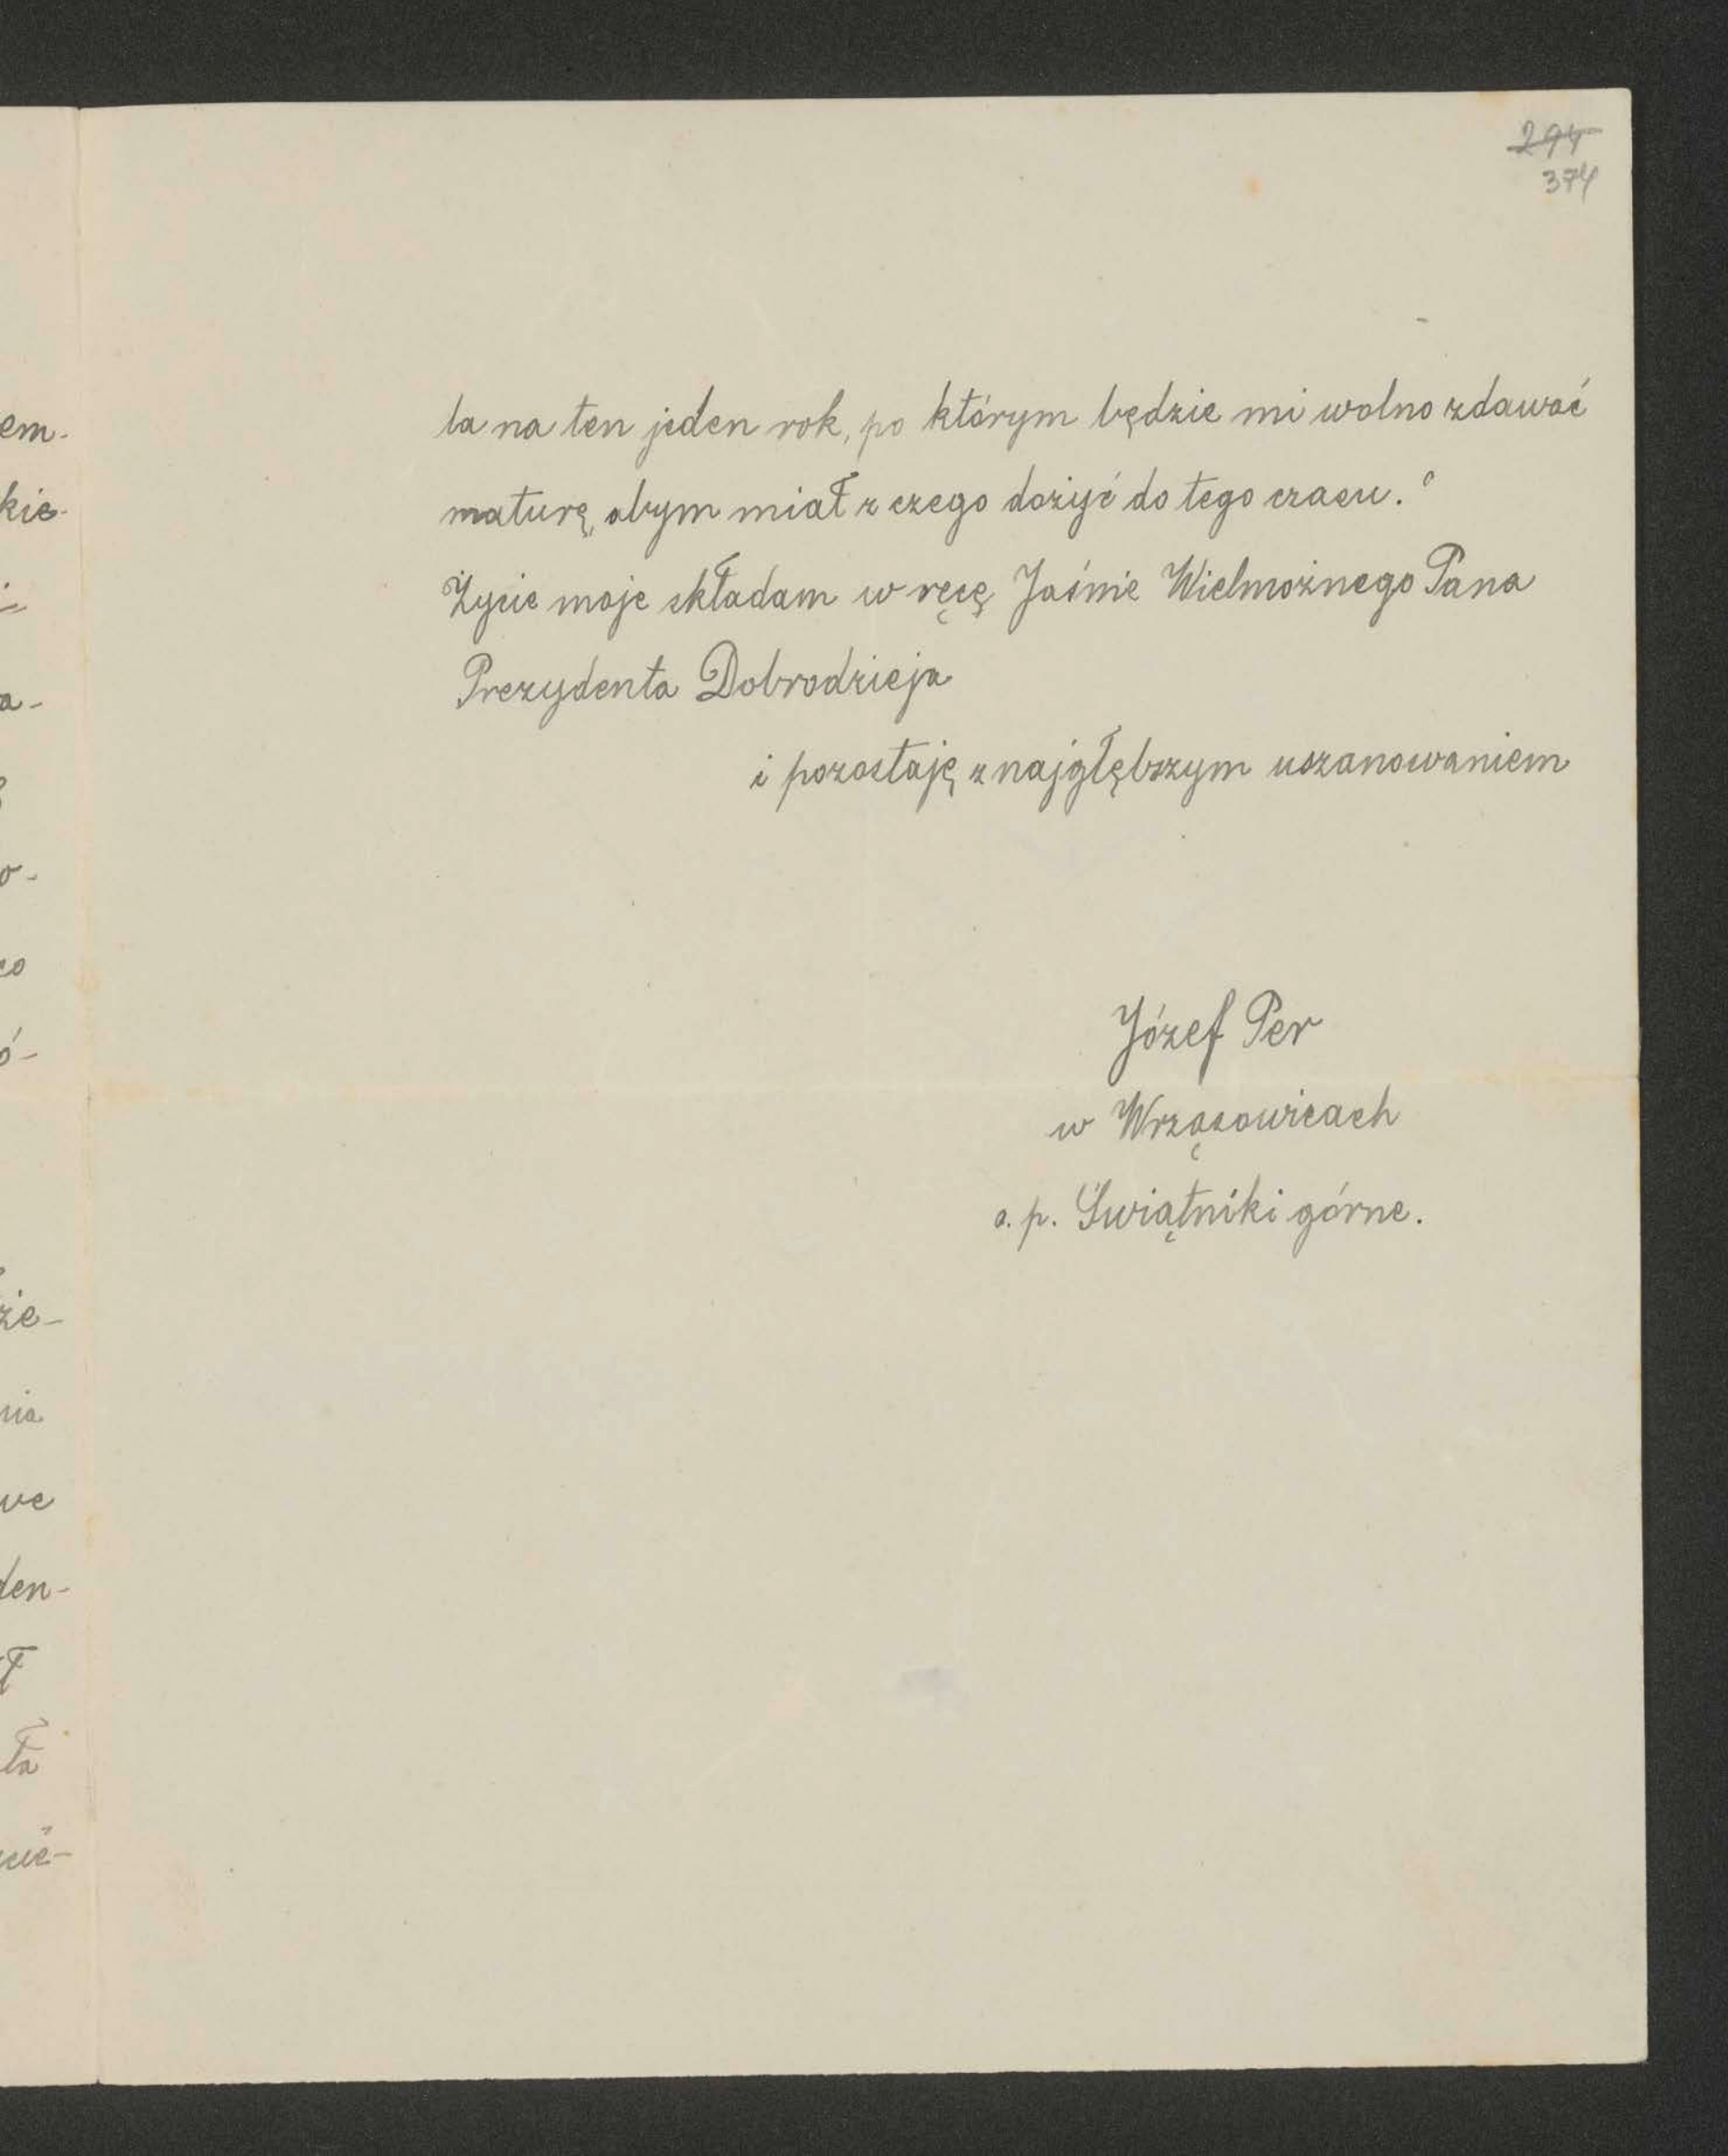 294
374
la na ten jeden rok, po którym będzie mi wolno zdawać
maturę, abym miał z czego dożyć do tego czasu.
Życie moje składam w ręcę Jaśnie Wielmożnego Pana
Prezydenta Dobrodzieja
i pozostaję z najgłębszym uszanowaniem
Józef Per
w Wrząsowicach
o. p. Świątniki górne.
em-
kie-
a-
o-
co
ó-
że-
nia
we
den-
ł
ła